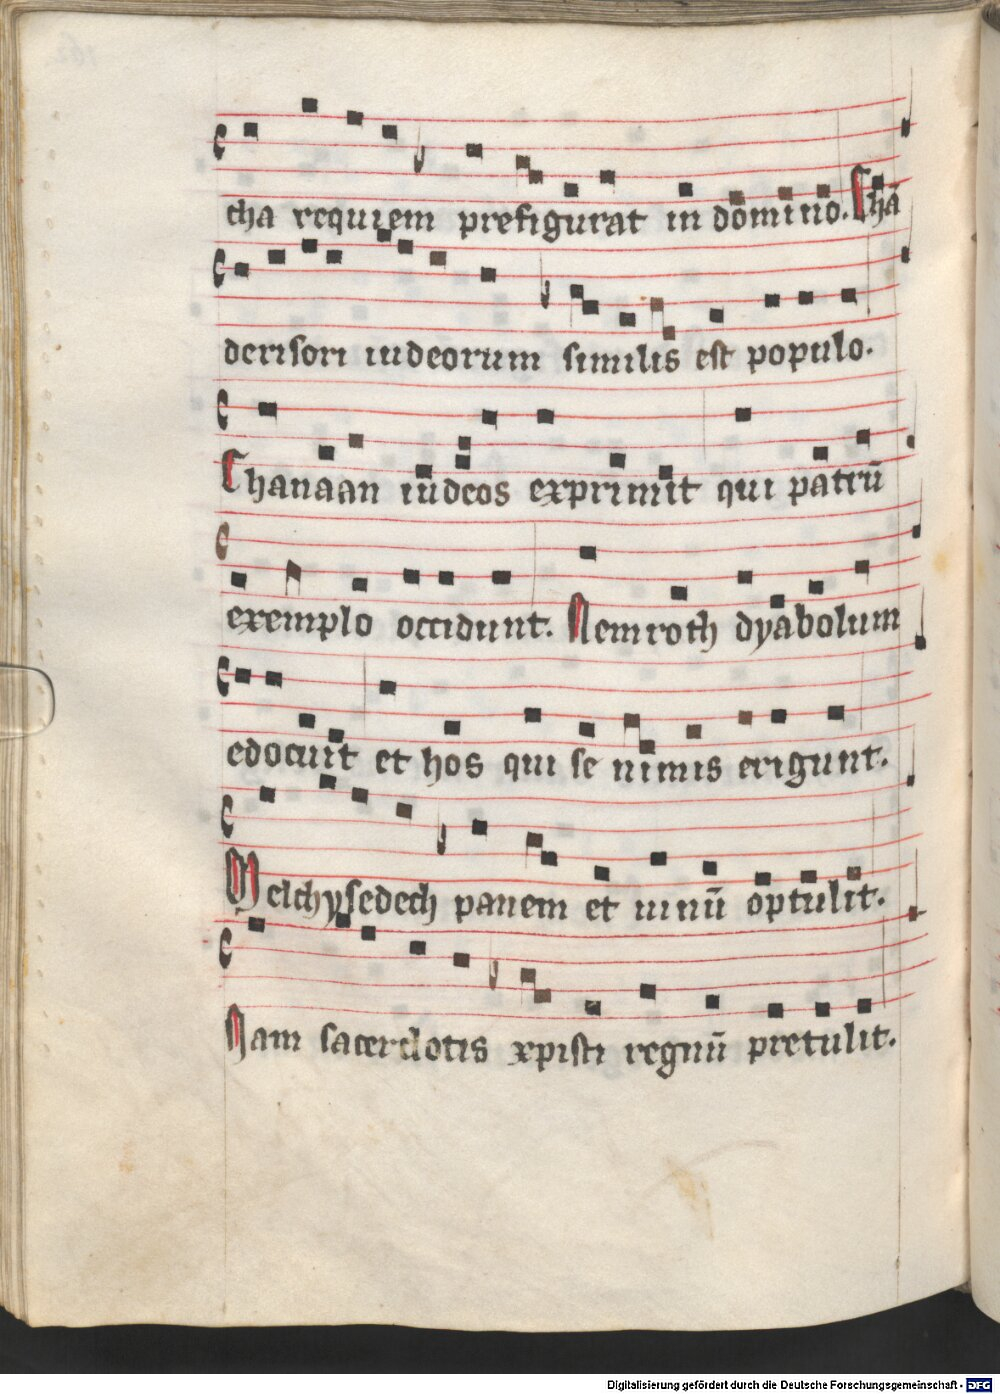 cha requiem prefigurat in domino. Chā
derisori iudeorum similis est populo.
Chanaan iudeos exprimit qui patrū
exemplo occidunt. Nemroth dyabolum
edocuit et hos qui se nimis erigunt.
Melchysedech panem et uinū optulit.
Nam sacerdotis xpisti regnū pretulit.
Digitalisierung gefördert durch die Deutsche Forschungsgemeinschaft - DFG